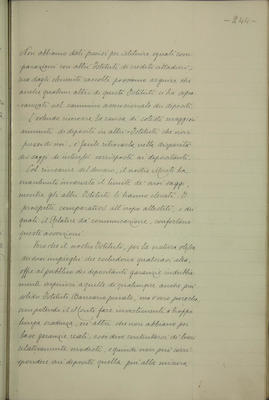 - 244 -
Non abbiamo dati precisi per istituire eguali com-
parazioni con altri Istituti di credito cittadini,
ma dagli elementi raccolti possiamo arguire che
anche qualcun altro di questi Istituti ci ha sopra-
vanzati nel cammino ascensionale dei depositi.
E volendo ricercare la causa di cotesti maggiori
aumenti di depositi in altri Istituti che non
presso di noi, è facile ritrovarla nella disparità
dei saggi di interessi corrisposti ai depositanti.
Col rincarare del denaro, il nostro Istituto ha
mantenuto invariato il limite de' suoi saggi,
mentre gli altri Istituti lo hanno elevato. I
prospetti comparativi all'uopo allestiti, e dei
quali il Relatore dà comunicazione, confortano
queste asserzioni.
Invero il nostro Istituto, per la natura stessa
dei suoi impieghi che escludono qualsiasi alea,
offre al pubblico dei depositanti garanzie indubbia-
mente superiori a quelle di qualunque anche più
solido Istituto Bancario privato, ma è vero perciò,
non potendo il nostro fare investimenti a troppa
lunga scadenza, nè altri che non abbiano per
base garanzie reali, esso deve contentarsi di lucri
relativamente modesti, e quindi non può corri-
spondere ai depositi quella più alta misura